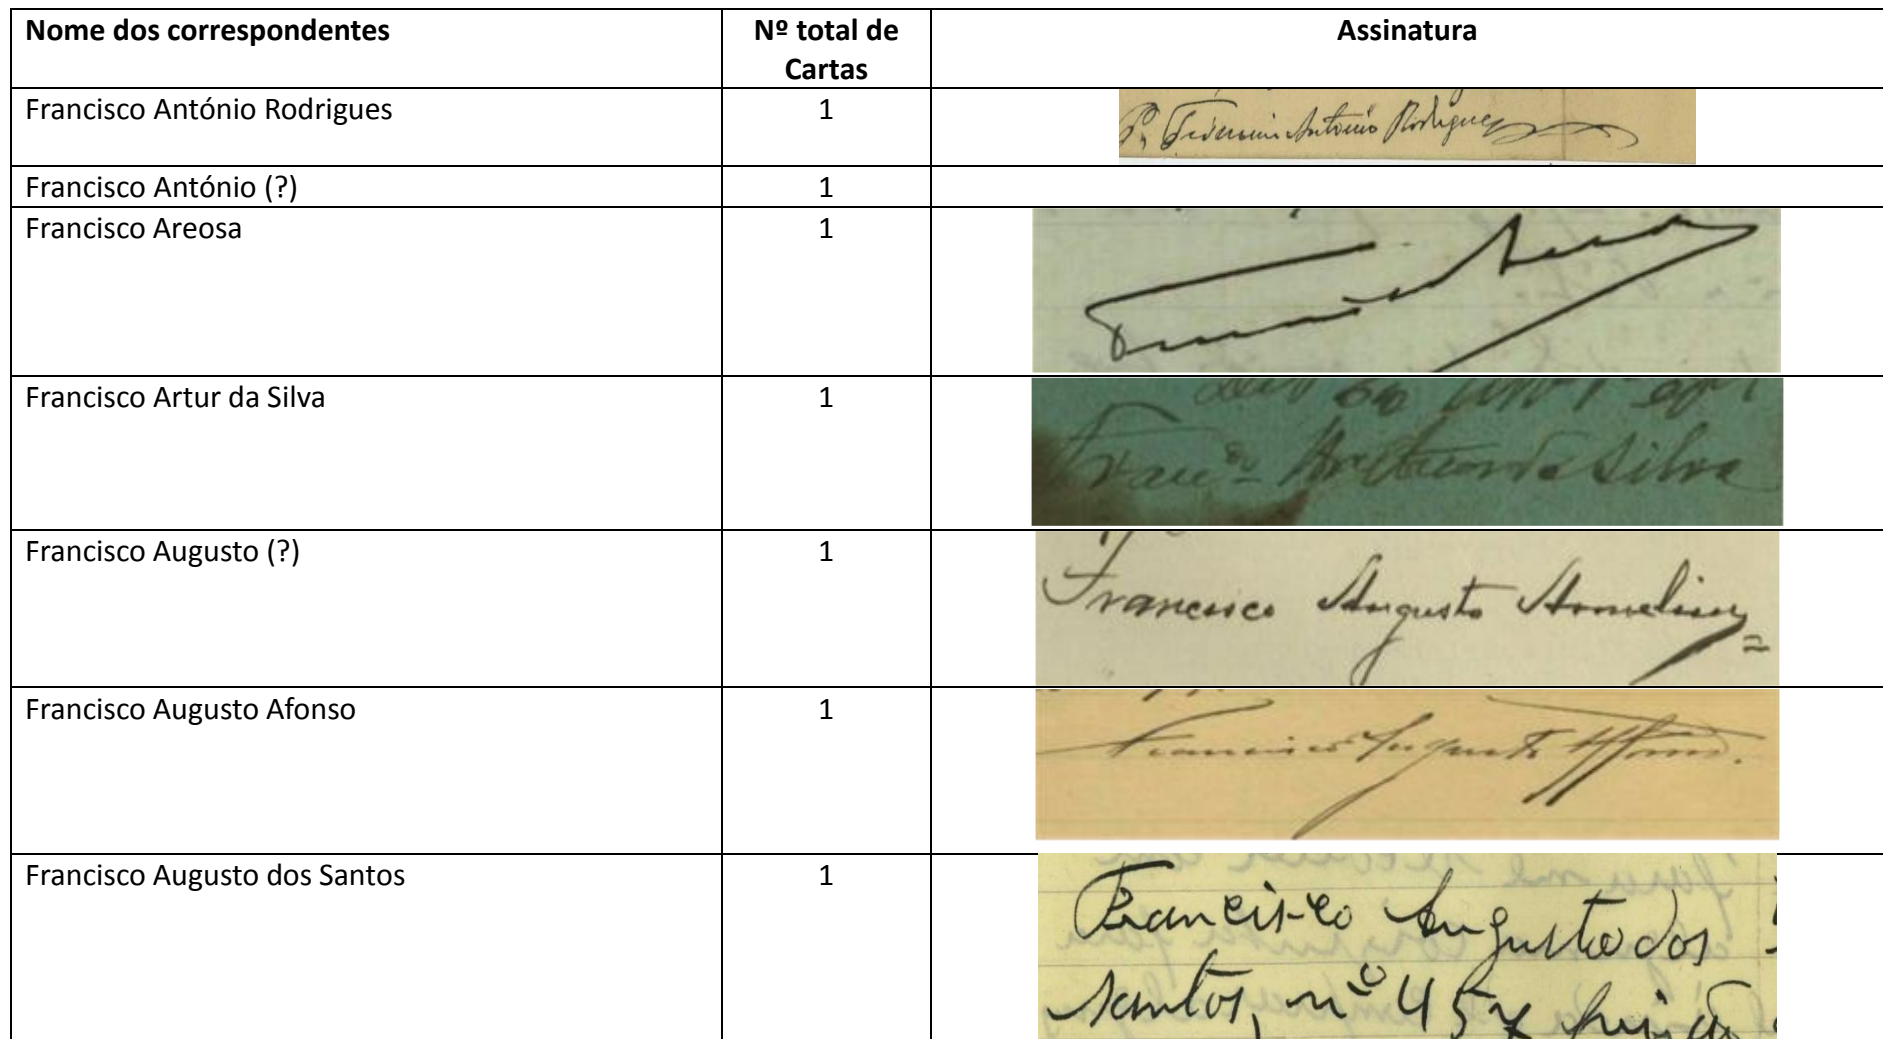 Nome dos correspondentes
Nº total de Cartas
Assinatura
Francisco António Rodrigues
1
António Rodrigues
Francisco António (?)
1
Francisco Areosa
1
Francisco Artur da Silva
1
Franco Arthur da Silva
Francisco Augusto (?)
1
Francisco Augusto
Francisco Augusto Afonso
1
Francisco Augusto Affonso.
Francisco Augusto dos Santos
1
Francisco Augusto dos
Santos, nº 457